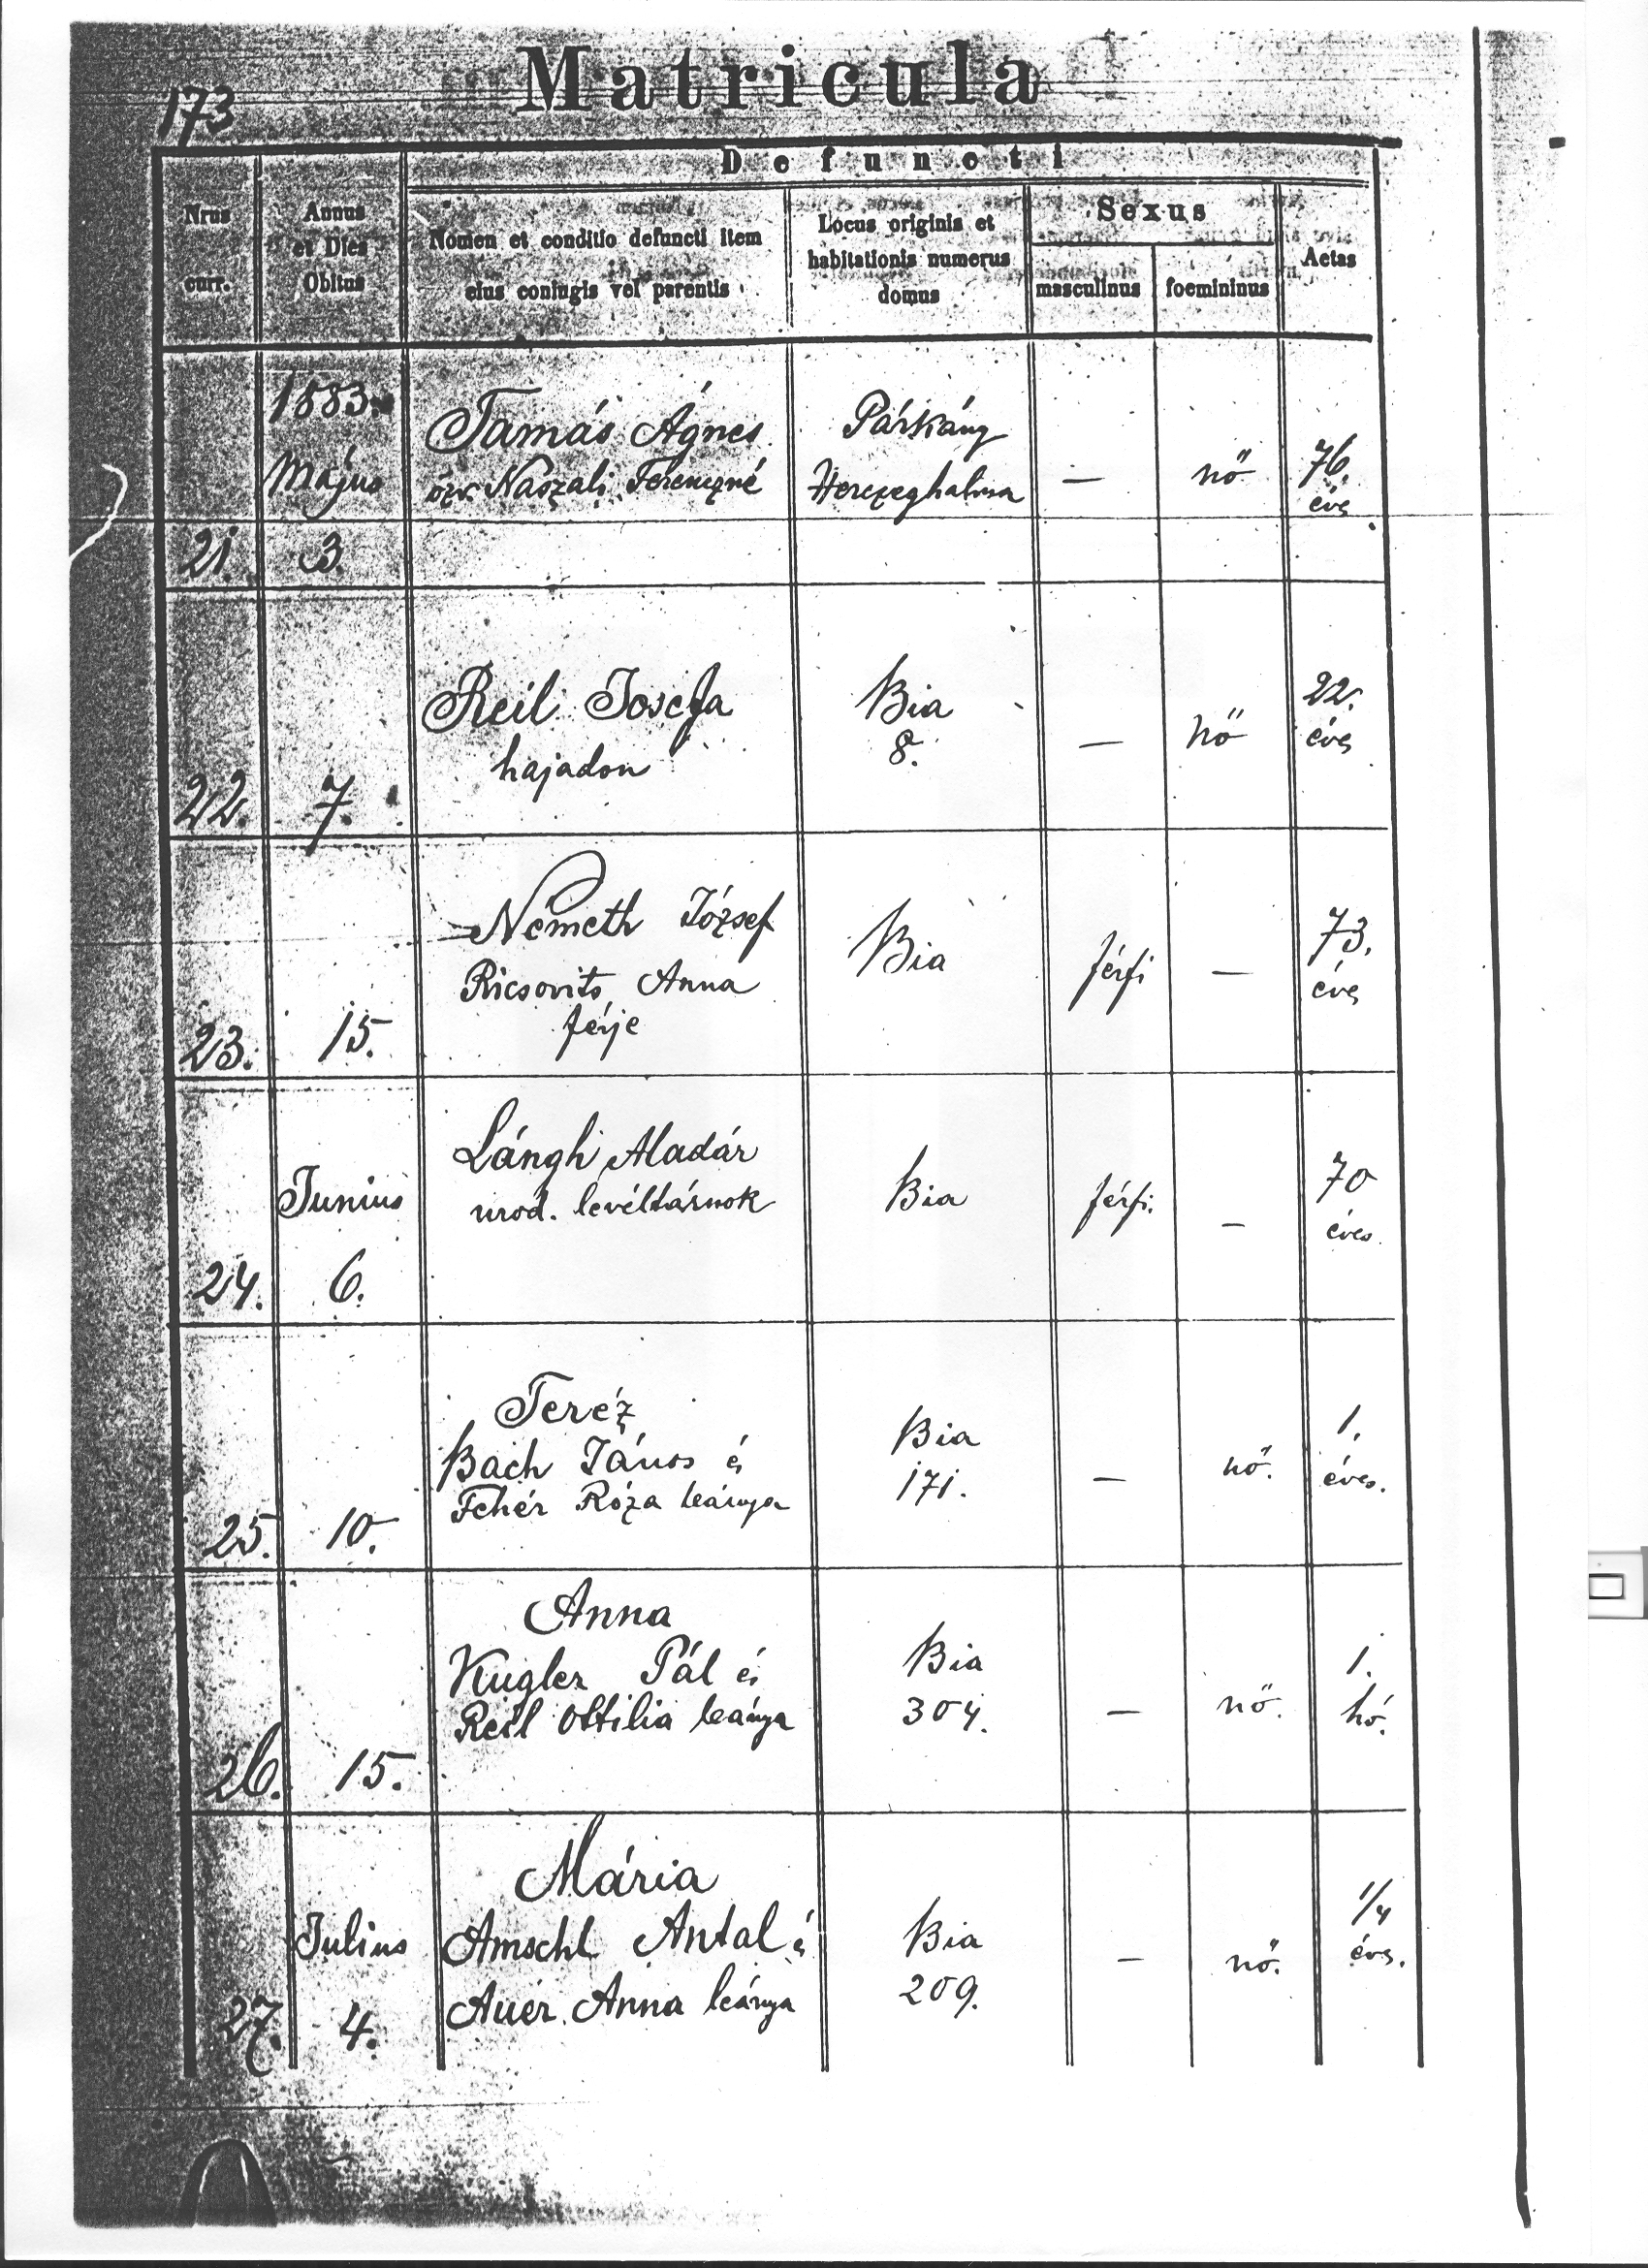 173
Matricula
Defuncti
Nrus curr.
Annus et Dies Obitus
Nomen et conditio defuncti item
eius coniugis vel parentis
Locus originis et
habitationis numerus
domus
Sexus
masculinus
foemininus
Aetas
1883
Május
21. 3.
Tamás Ágnes
özv. Naszali Ferenczné
Párkány
Herczeghalma
—
nő
76.
éves
22. 7.
Reil Josefa
hajadon
Bia
8.
—
nő
22.
éves
23. 15.
Németh József
Ricsovits Anna
férje
Bia
férfi
—
73.
éves
Junius
24. 6.
Lángh Aladár
urod. levéltárnok
Bia
férfi.
—
70
éves
25. 10.
Teréz
Bach János és
Fehér Róza leánya
Bia
171.
—
nő.
1.
éves.
26. 15.
Anna
Kugler Pál és
Reil Ottilia leánya
Bia
304.
—
nő.
1.
hó.
Julius
27. 4.
Mária
Amschl Antal é
Auer Anna leánya
Bia
209.
—
nő.
1/4
éves.